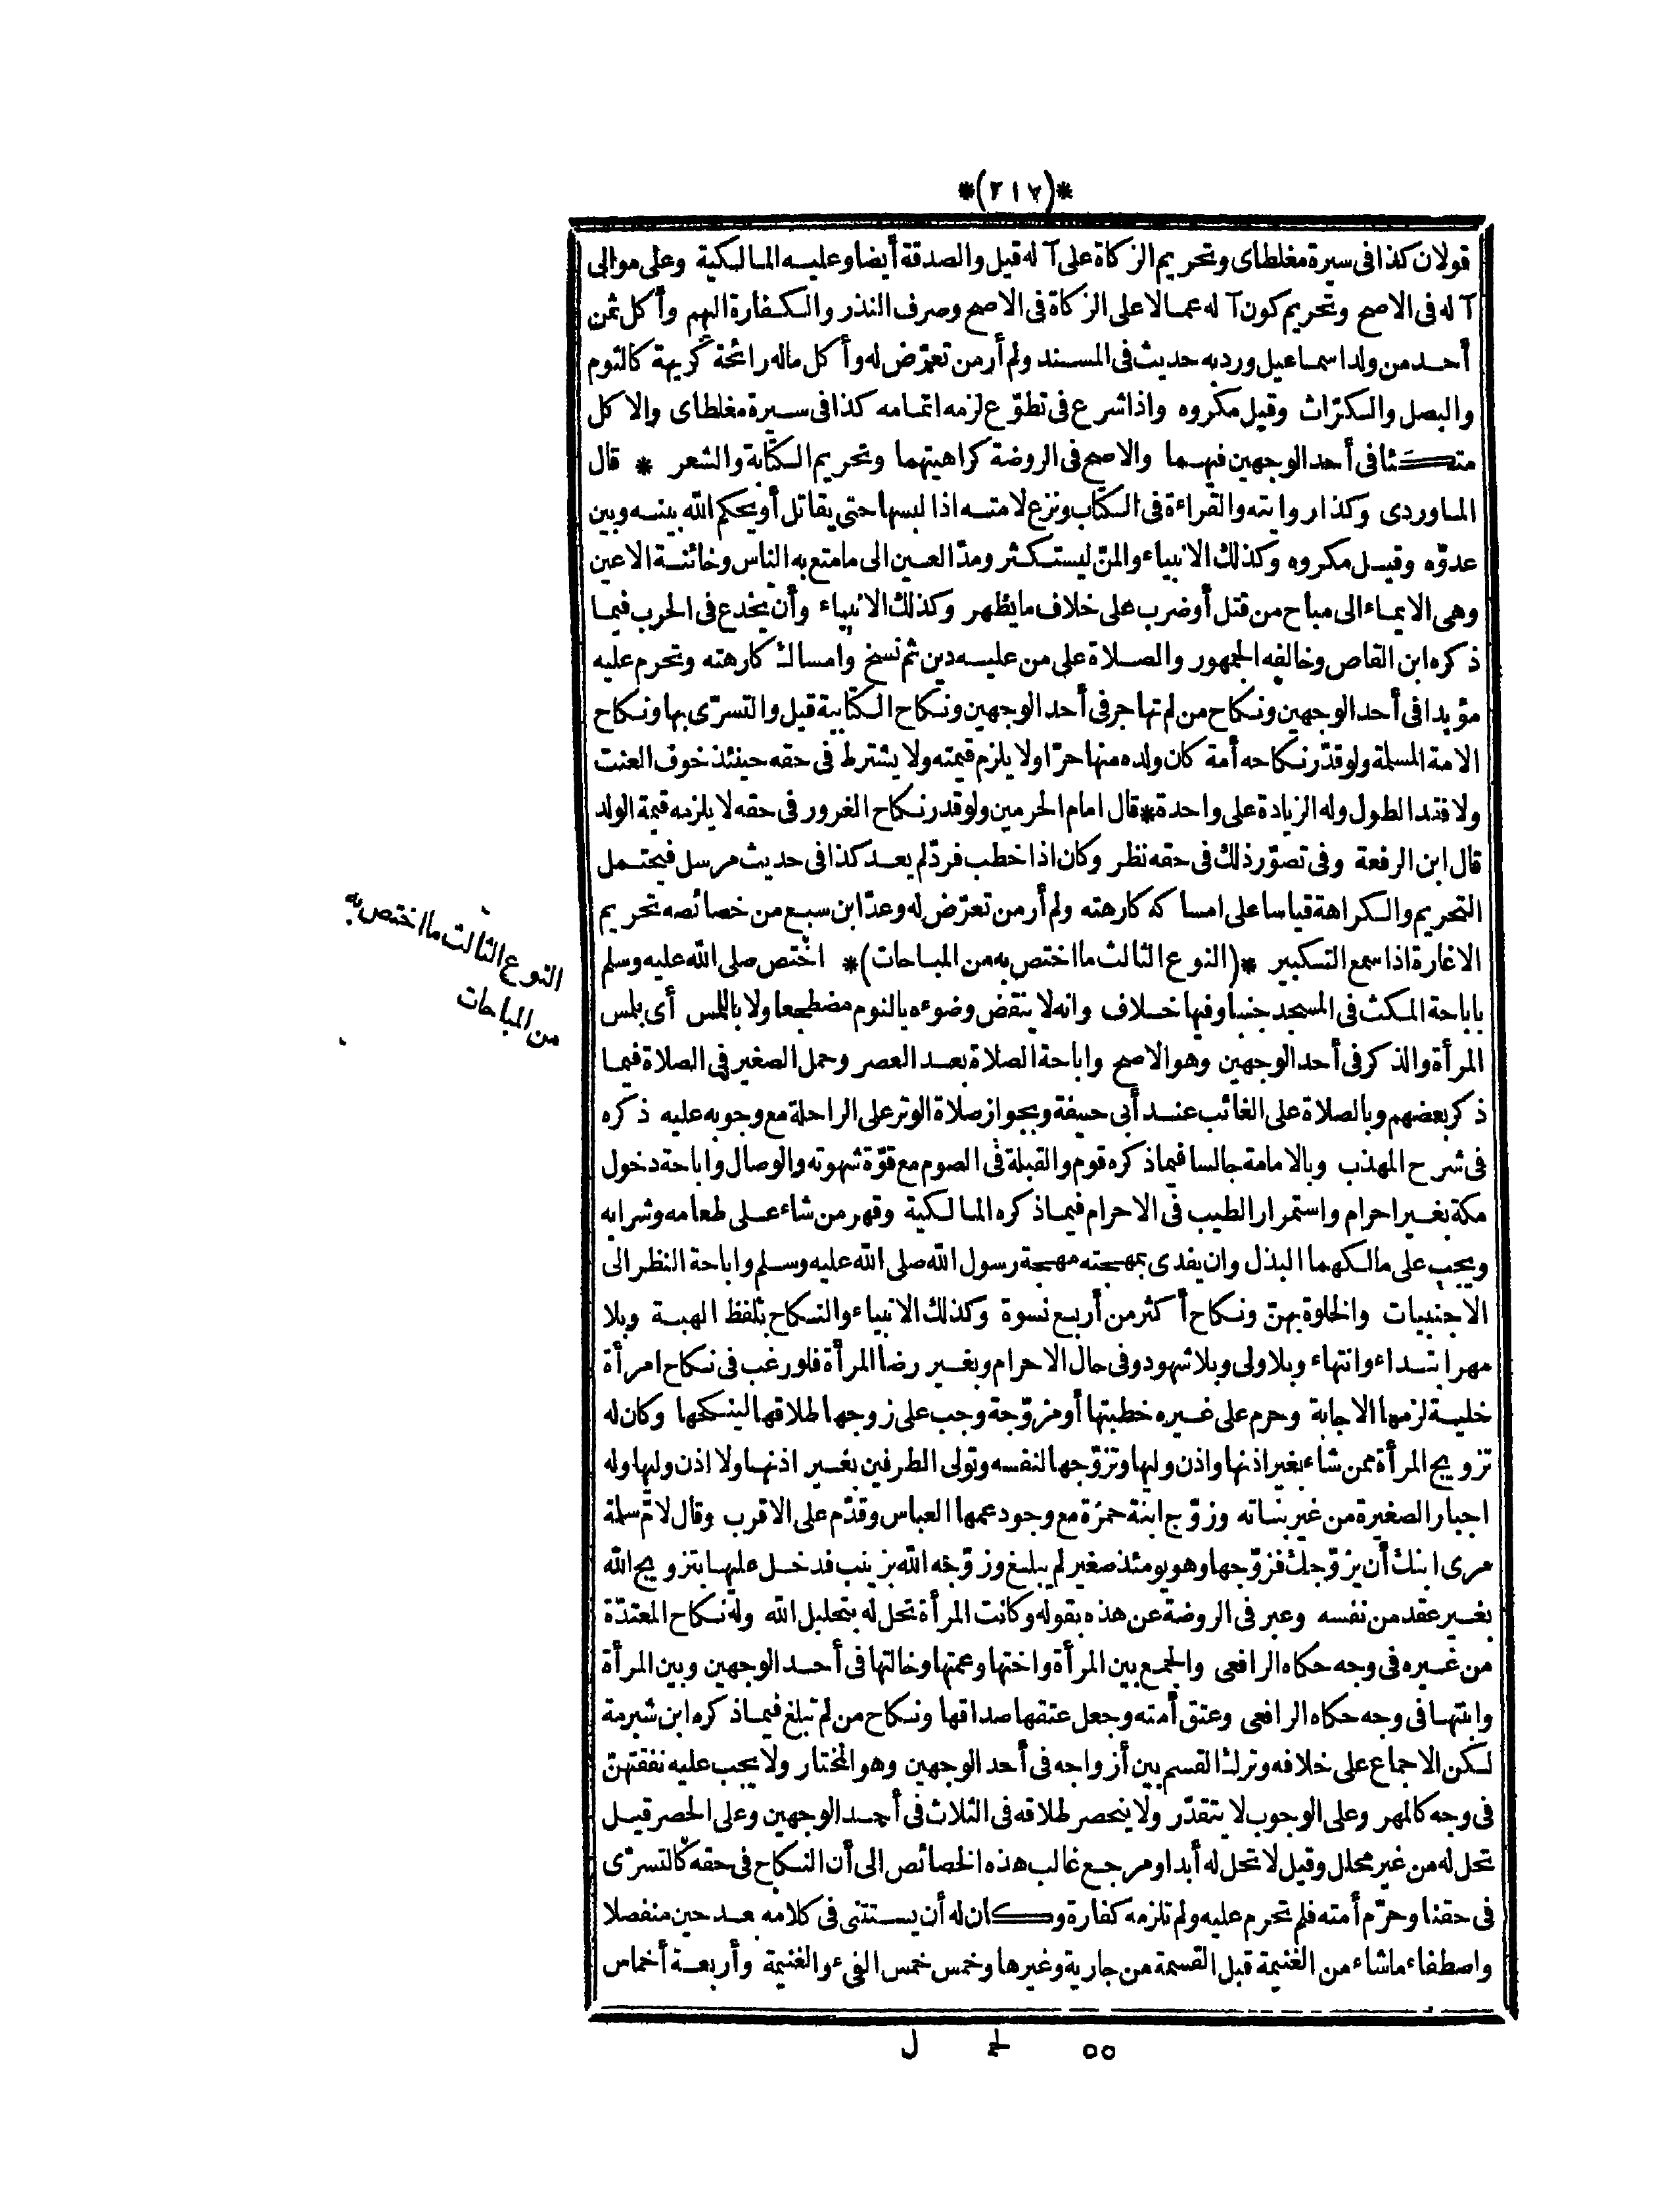 *(٢١٧)*
قولان كذا فى سيرة مغلطاى وتحريم الزكاة على آله قيل والصدقة أيضا وعليه المالكية وعلى موالى
آله فى الاصح وتحريم كون آله عمالا على الزكاة فى الاصح وصرف النذر والكفارة اليهم وأكل ثمن
أحد من ولد اسماعيل ورد به حديث فى المسند ولم أر من تعرّض له وأكل ماله رائحة كريهة كالثوم
والبصل والكرّاث وقيل مكروه واذا شرع فى تطوّع لزمه اتمامه كذا فى سيرة مغلطاى والاكل
متكئا فى أحد الوجهين فيهما والاصح فى الروضة كراهيتهما وتحريم الكتابة والشعر * قال
الماوردى وكذا روايته والقراءة فى الكتاب ونزع لامته اذا لبسها حتى يقاتل أو يحكم الله بينه وبين
عدوّه وقيل مكروه وكذلك الانبياء والمنّ ليستكثر ومدّ العين الى ما متع به الناس وخائنة الاعين
وهى الايماء الى مباح من قتل أو ضرب على خلاف ما يظهر وكذلك الانبياء وأن يخدع فى الحرب فيما
ذكره ابن القاص وخالفه الجمهور والصلاة على من عليه دين ثم نسخ وامساك كارهته وتحرم عليه
مؤبدا فى أحد الوجهين ونكاح من لم تهاجر فى أحد الوجهين ونكاح الكتابية قيل والتسرّى بها ونكاح
الامة المسلمة ولو قدّر نكاحه أمة كان ولده منها حرّا ولا يلزم قيمته ولا يشترط فى حقه حينئذ خوف العنت
ولا فقد الطول وله الزيادة على واحدة * قال امام الحرمين ولو قدر نكاح الغرور فى حقه لا يلزمه قيمة الولد
قال ابن الرفعة وفى تصوّر ذلك فى حقه نظر وكان اذا خطب فردّ لم يعد كذا فى حديث مرسل فيحتمل
التحريم والكراهة قياسا على امساكه كارهته ولم أر من تعرّض له وعدّ ابن سبع من خصائصه تحريم
الاغارة اذا سمع التكبير *(النوع الثالث ما اختص به من المباحات)* اختص صلى الله عليه وسلم
باباحة المكث فى المسجد جنبا وفيها خلاف وانه لا ينقض وضوءه بالنوم مضطجعا ولا باللمس أى بلمس
المرأة والذكر فى أحد الوجهين وهو الاصح واباحة الصلاة بعد العصر وحمل الصغير فى الصلاة فيما
ذكر بعضهم وبالصلاة على الغائب عند أبى حنيفة وبجواز صلاة الوتر على الراحلة مع وجوبه عليه ذكره
فى شرح المهذب وبالامامة جالسا فيما ذكره قوم والقبلة فى الصوم مع قوّة شهوته والوصال واباحة دخول
مكة بغير احرام واستمرار الطيب فى الاحرام فيما ذكره المالكية وقهر من شاء على طعامه وشرابه
ويجب على مالكهما البذل وان يفدى بمهجته مهجة رسول الله صلى الله عليه وسلم واباحة النظر الى
الاجنبيات والخلوة بهنّ ونكاح أكثر من أربع نسوة وكذلك الانبياء والنكاح بلفظ الهبة وبلا
مهر ابتداء وانتهاء وبلا ولى وبلا شهود وفى حال الاحرام وبغير رضا المرأة فلو رغب فى نكاح امرأة
خلية لزمها الاجابة وحرم على غيره خطبتها أو مزوّجة وجب على زوجها طلاقها لينكحها وكان له
تزويج المرأة ممن شاء بغير اذنها واذن وليها وتزوّجها لنفسه وتولى الطرفين بغير اذنها ولا اذن وليها وله
اجبار الصغيرة من غير بناته وزوّج ابنة حمزة مع وجود عمها العباس وقدّم على الاقرب وقال لامّ سلمة
مرى ابنك أن يزوّجك فزوّجها وهو يومئذ صغير لم يبلغ وزوّجه الله بزينب فدخل عليها بتزويج الله
بغير عقد من نفسه وعبر فى الروضة عن هذه بقوله وكانت المرأة تحل له بتحليل الله وله نكاح المعتدّة
من غيره فى وجه حكاه الرافعى والجمع بين المرأة واختها وعمتها وخالتها فى أحد الوجهين وبين المرأة
وابنتها فى وجه حكاه الرافعى وعتق أمته وجعل عتقها صداقها ونكاح من لم تبلغ فيما ذكره ابن شبرمة
لكن الاجماع على خلافه وترك القسم بين أزواجه فى أحد الوجهين وهو المختار ولا يجب عليه نفقتهنّ
فى وجه كالمهر وعلى الوجوب لا يتقدّر ولا ينحصر طلاقه فى الثلاث فى أحد الوجهين وعلى الحصر قيل
تحل له من غير محلل وقيل لا تحل له أبدا ومرجع غالب هذه الخصائص الى أن النكاح فى حقه كالتسرّى
فى حقنا وحرّم أمته فلم تحرم عليه ولم تلزمه كفارة وكان له أن يستثنى فى كلامه بعد حين منفصلا
واصطفاء ما شاء من الغنيمة قبل القسمة من جارية وغيرها وخمس خمس الفىء والغنيمة وأربعة أخماس
النوع الثالث ما اختص به
من المباحات
٥٥ خ ل